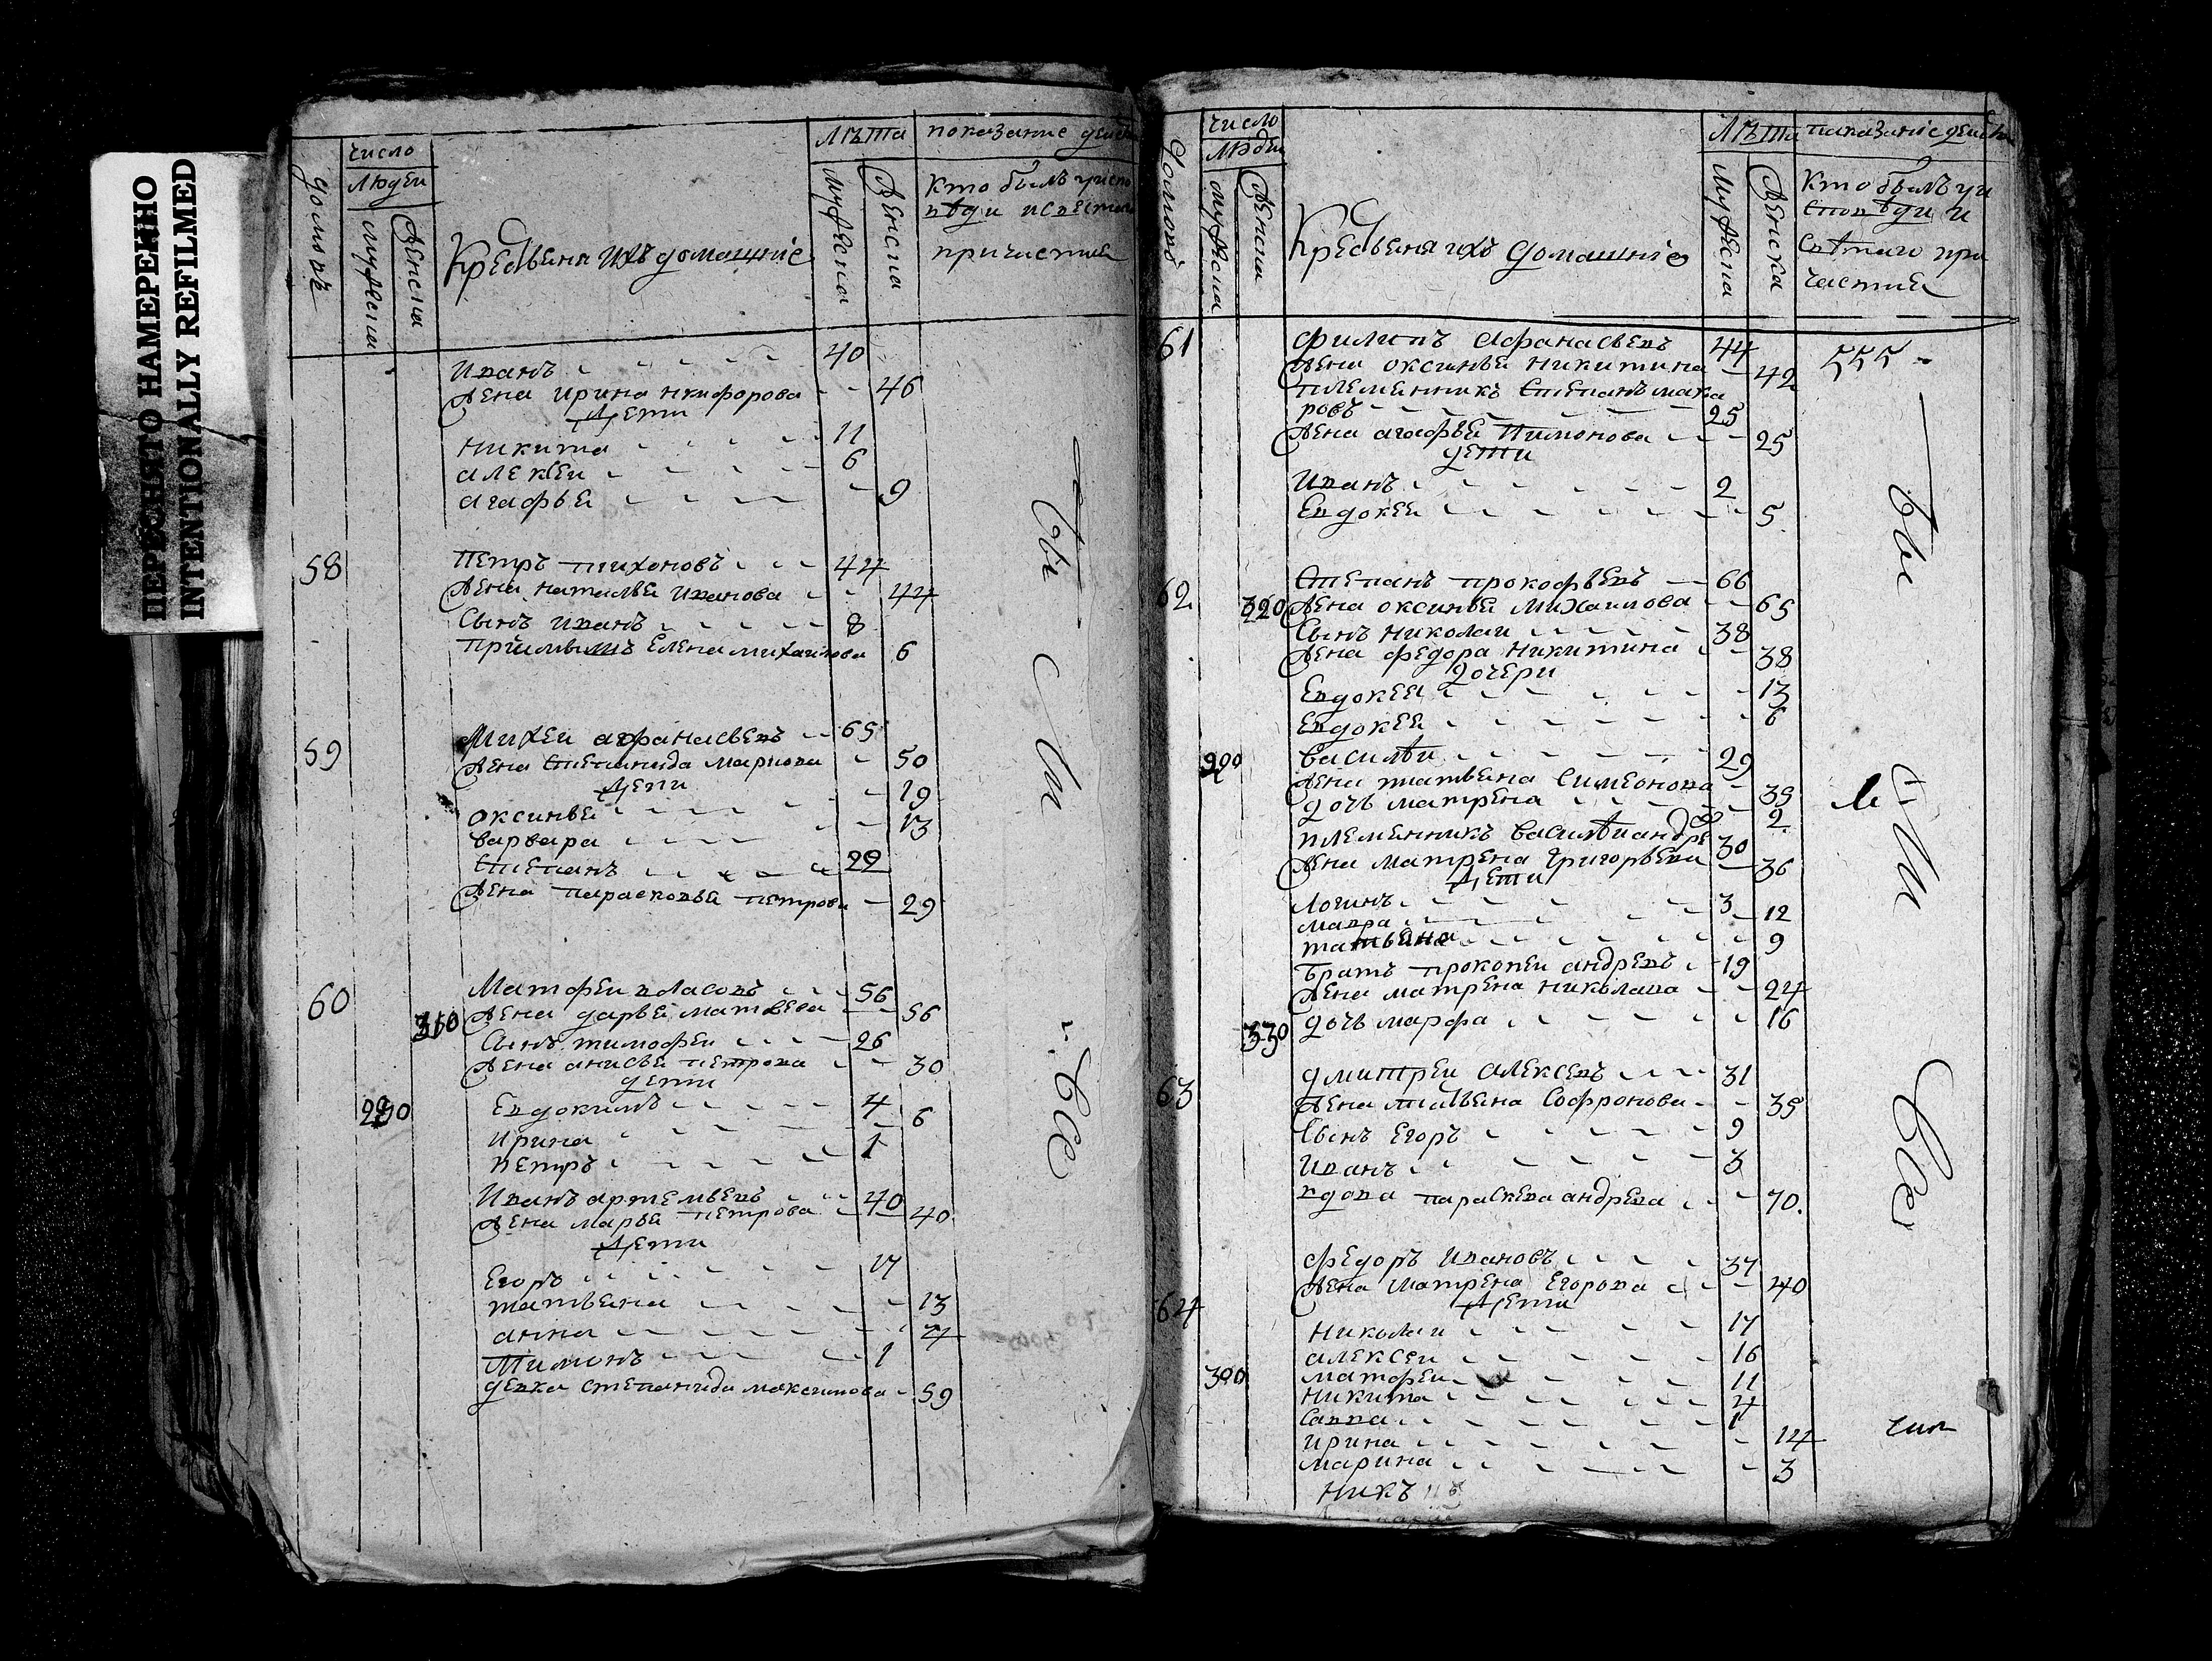 ПЕРЕСНЯТО НАМЕРЕННО
INTENTIONALLY REFILMED
домовъ
число
людеи
мужеска
женска
Крестьяня ихъ домашние
лѣта
мужеска
женска
показание деист
Кто былъ уиспо
вѣди исвятаго
причастия
Иванъ 40
жена ирина никифорова 46
дети
никита 11
алексеи 6
агафья 9
58 петръ тихоновъ 44
жена наталья иванова 44
сынъ иванъ 8
приимышъ елена михаилова 6
59 Михеи афанасьевъ 65
жена степанида маркова 50
дети
оксинья 19
варвара 13
степанъ 22
жена парасковья петрова 29
60 Матфеи власовъ 56
310 жена дарья матвеева 56
сынъ тимофеи 26
жена анисья петрова 30
дети
Евдокимъ 4
ирина 6
петръ 1
Иванъ артемьевъ 40
жена марья петрова 40
дети
Егоръ 17
татьяна 13
анна 4
Пимонъ 1
девка степанида максимова 59
бы ли все
домовъ
число
людеи
мужеска
женска
Крестьяня ихъ домашние
лѣта
мужеска
женска
показание деиств
Кто былъ уи
споведи и
святаго при
частия
61 филипъ афанасьевъ 44
жена оксинья никитина 42
племянникъ степанъ мака
ровъ 25
жена агафья пимонова 25
дети
Иванъ 2
Евдокея 5
62 степанъ прокофьевъ 66
320 жена оксинья михаилова 65
сынъ николаи 38
жена федора никитина 38
дочери
Евдокея 13
Евдокея 6
василѣи 29
жена татьяна симеонова 39
дочь матрена 2
племянникъ василѣи андре
евъ 30
жена матрена григорьева 36
дети
Логинъ 3
мавра 12
татьяна 9
братъ прокопеи андреевъ 19
жена матрена николаева 24
330 дочь марфа 16
63 дмитреи алексеевъ 31
жена татьяна софронова 35
сынъ егоръ 9
иванъ 3
вдова параскева андреева 70
64 федоръ ивановъ 37
жена матрена егорова 40
дети
николаи 17
алексеи 16
300 матфеи 11
никита 4
савва 1
ирина 14
марина 3
никъ
555
бы ли все